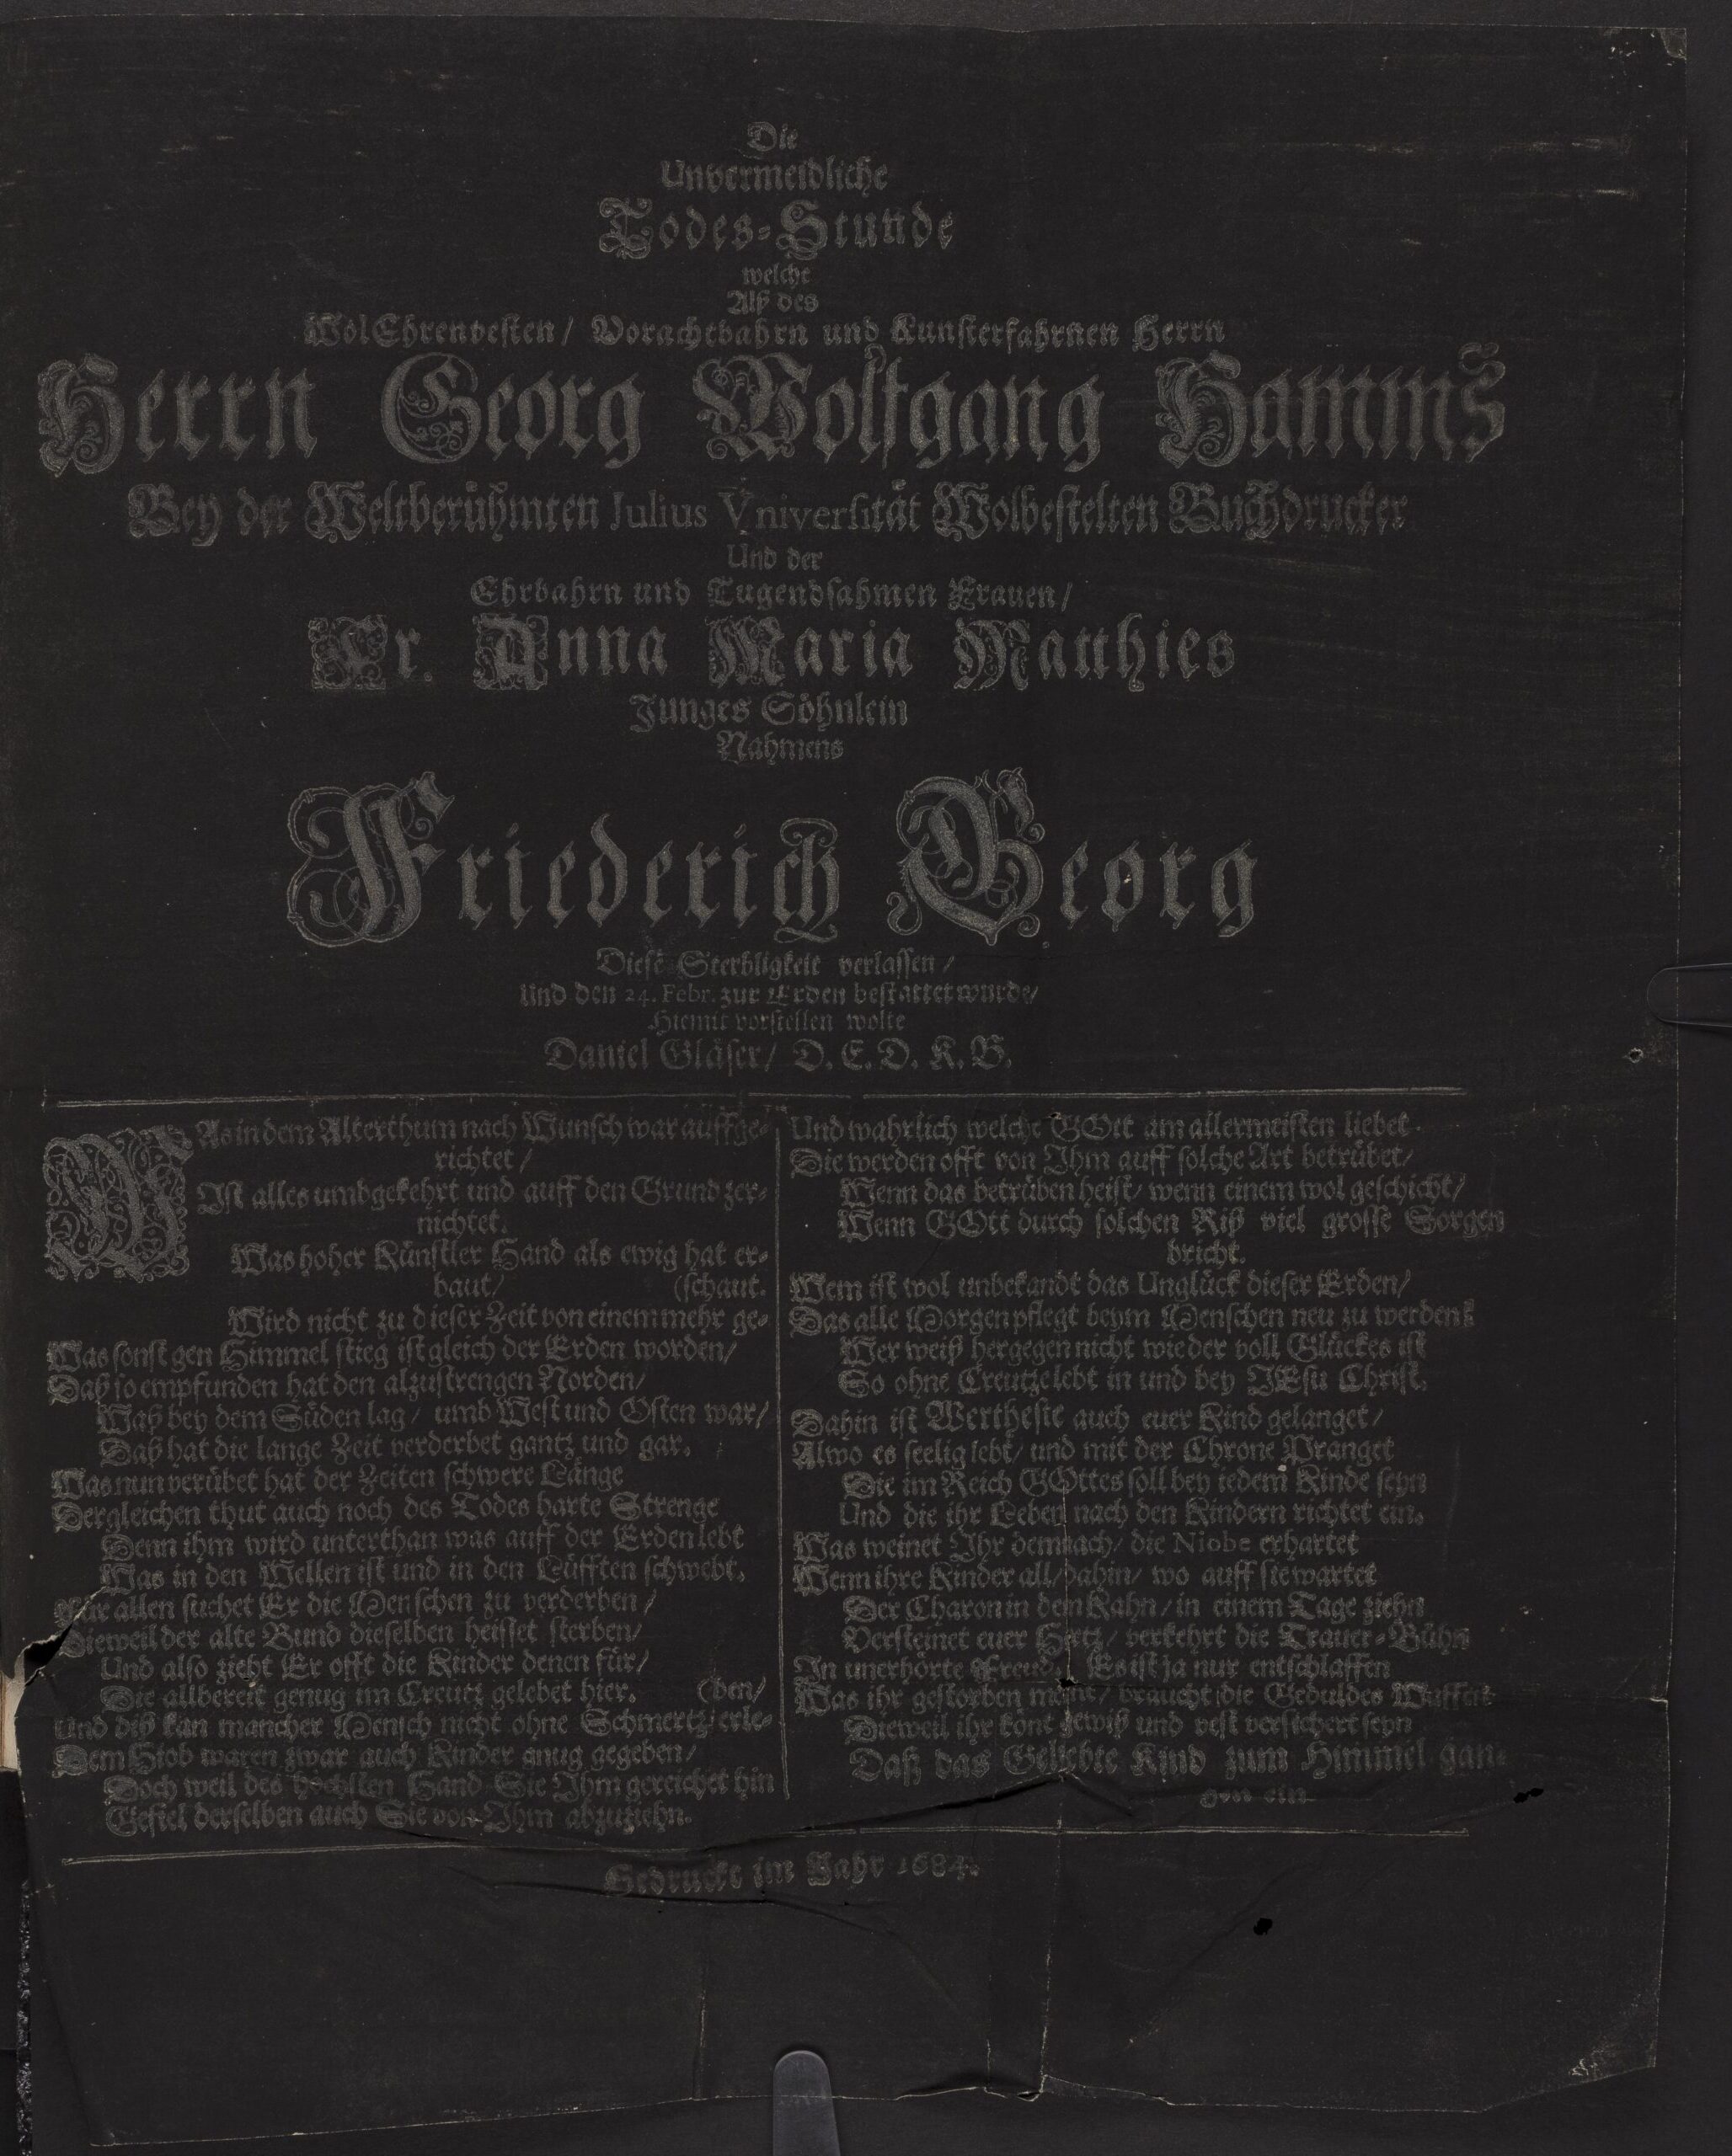 Die
Unvermeidliche
Todes-Stunde
welche
Alß des
WolEhrenvesten/ Vorachtbahrn und Kunsterfahrnen Herrn
Herrn Georg Wolfgang Hamms
Bey der Weltberühmten Julius Vniversität Wolbestelten Buchdrucker
Und der
Ehrbahrn und Tugendsahmen Frauen/
Fr. Anna Maria Matthies
Junges Söhnlein
Nahmens
Friederich Georg
Diese Sterbligkeit verlassen/
Und den 24. Febr. zur Erden bestattet wurde/
Hiemit vorstellen wolte
Daniel Gläser/ D. E. D. K. B.
WAs in dem Alterthum nach Wunsch war auffge-
richtet/
Ist alles umbgekehrt und auff den Grund zer-
nichtet.
Was hoher Künstler Hand als ewig hat er-
baut/ (schaut.
Wird nicht zu dieser Zeit von einem mehr ge-
Was sonst gen Himmel stieg ist gleich der Erden worden/
Daß so empfunden hat den alzustrengen Norden/
Waß bey dem Süden lag/ umb West und Osten war/
Daß hat die lange Zeit verderbet gantz und gar.
Was nun verübet hat der Zeiten schwere Länge
Dergleichen thut auch noch des Todes harte Strenge
Denn ihm wird unterthan was auff der Erden lebt
Was in den Wellen ist und in den Lüfften schwebt.
Für allen suchet Er die Menschen zu verderben/
Dieweil der alte Bund dieselben heisset sterben/
Und also zieht Er offt die Kinder denen für/
Die allbereit genug im Creutz gelebet hier. (ben/
Und diß kan mancher Mensch nicht ohne Schmertz erle-
Dem Hiob waren zwar auch Kinder gnug gegeben/
Doch weil des höchsten Hand Sie Ihm gereichet hin
Gefiel derselben auch Sie von Ihm abzuziehn.
Und wahrlich welche GOtt am allermeisten liebet
Die werden offt von Ihm auff solche Art betrübet/
Wenn das betrüben heist/ wenn einem wol geschicht/
Wenn GOtt durch solchen Riß viel grosse Sorgen
bricht.
Wem ist wol unbekandt das Unglück dieser Erden/
Das alle Morgen pflegt beym Menschen neu zu werden?
Wer weiß hergegen nicht wie der voll Glückes ist
So ohne Creutze lebt in und bey JEsu Christ.
Dahin ist Wertheste auch euer Kind gelanget/
Alwo es seelig lebt/ und mit der Chrone Pranget
Die im Reich GOttes soll bey iedem Kinde seyn
Und die ihr Leben nach den Kindern richtet ein.
Was weinet Ihr demnach/ die Niobe erhartet
Wenn ihre Kinder all/dahin/ wo auff sie wartet
Der Charon in dem Kahn/ in einem Tage ziehn
Versteinet euer Hertz/ verkehrt die Trauer-Bühn
In unerhörte Freud/ Es ist ja nur entschlaffen
Was ihr gestorben meint/ braucht die Geduldes Waffen
Dieweil ihr könt gewiß und vest versichert seyn
Daß das Geliebte Kind zum Himmel gan-
gen ein
Gedruckt im Jahr 1684.